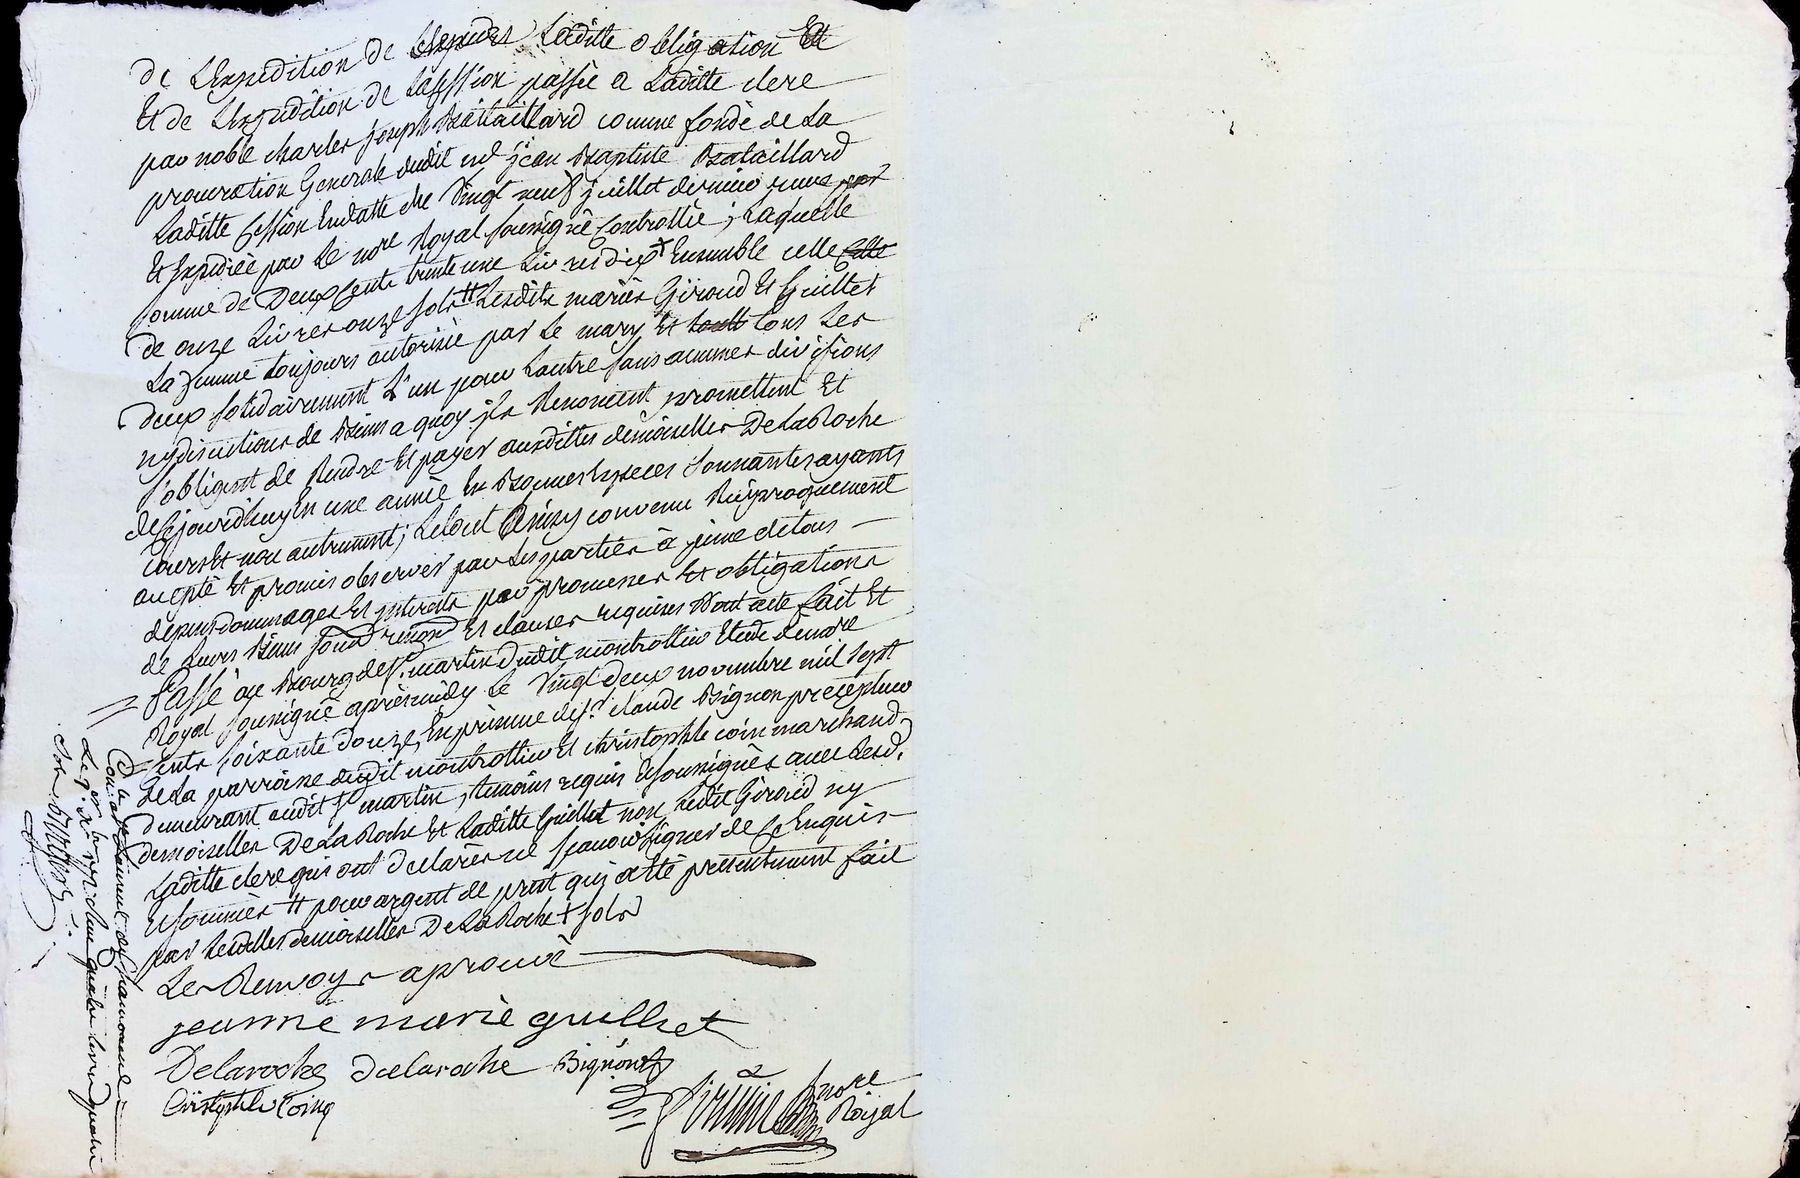 de L'Expedition de Laditte obligation Et
Et de L'Expedition de Lacession passée a Laditte clere
par noble charles Joseph Bataillard comme fondé de La
procuration Generale dudit me jean Baptiste Bataillard
Laditte Cession Endatte du vingt neuf juillet dernier
Et Expediée par Le nore Royal soussigné Controllée; Laquelle
somme de Deux Cents trente une Livres dix + Ensemble celle
de onze Livres onze sols # Lesdits mariés Giroud Et Guillet
La femme toujours autorisée par Le mary Et tous Les
deux solidairement L'un pour Lautre sans aucunes divisions
ny discutions de Biens a quoy ils Renoncent promettent Et
s'obligent de Rendre Et payer auxdittes demoiselles DeLaRoche
de Cejourdhuy En une année En Bonnes Especes sonnantes ayants
Cours Et non autrement; Letout Ainsy convenu Reciproquement
accepté Et promis observer par Les parties à peine de tous
depens dommages Et interets par promesses Et obligations
de Leurs Biens soumd renond Et clauses requises Dont acte fait Et
Passé au Bourg de St. martin dudit montrottier Etude dunore
Royal soussigné après midy Le vingt deux novembre mil sept
cents soixante douze, En presence de sr. claude Bignon precepteur
de La parroisse dudit montrottier Et christophle coin marchand
demeurant audit St martin, temoins requis Et soussignés avec Lesd.
demoiselles DeLaRoche Et Laditte Guillet non Ledit Giroud ny
Laditte clere qui ont declarés ne sçavoir signer de Ce Enquis
Et sommés # pour argent de pret qui a été presentement fait
par Lesdittes demoiselles DeLaRoche + sols
Les Renvoys aprouvé
jeanne marie guilliet
Delaroche Delaroche Bignon
Cristophle Coing
nore
Royal